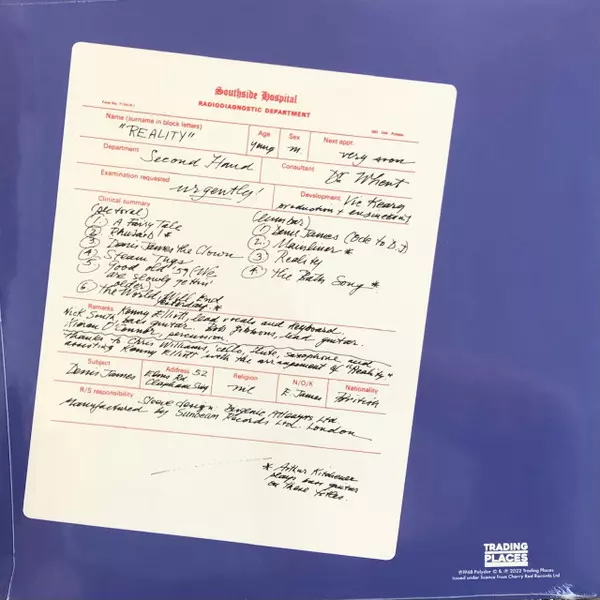 Southside Hospital
RADIODIAGNOSTIC DEPARTMENT
Name (surname in block letters)
"REALITY"
Age
young
Sex
m
Next appt.
very soon
Department
Second Hand
Consultant
Dr Whent
Examination requested
urgently!
Development Vic Keary
production + engineering
Clinical summary
(pectoral)
1. A Fairy Tale
2. RHUBARB! *
3 Denis James the Clown
4 Steam Tugs
5 Good old '59 (We
are slowly gettin'
older)
6 The World Will End
Yesterday. *
(lumbar)
1) Denis James (Ode to D.J)
2. Mainliner *
3 Reality
4. The Bath Song *
Remarks Kenny Elliott, lead vocals and keyboard.
Nick South, bass guitar. Bob Gibbons, lead guitar.
Kieran O'Connor, percussion
Thanks to Chris Williams, cello, flute, saxophone and
assisting Kenny Elliott with the arrangement of "Reality"
Subject
Denis James
Address 52
Elms Rd
Clapham
Religion
nil
N/O/K
E. James
Nationality
British
R/S responsibility
Sleeve design Ltd.
Manufactured by Sunbeam Records Ltd. London
* Arthur Kitchener
plays bass guitar
on these titles.
TRADING
PLACES
℗1968 Polydor © & ℗ 2022 Trading Places
Issued under licence from Cherry Red Records Ltd